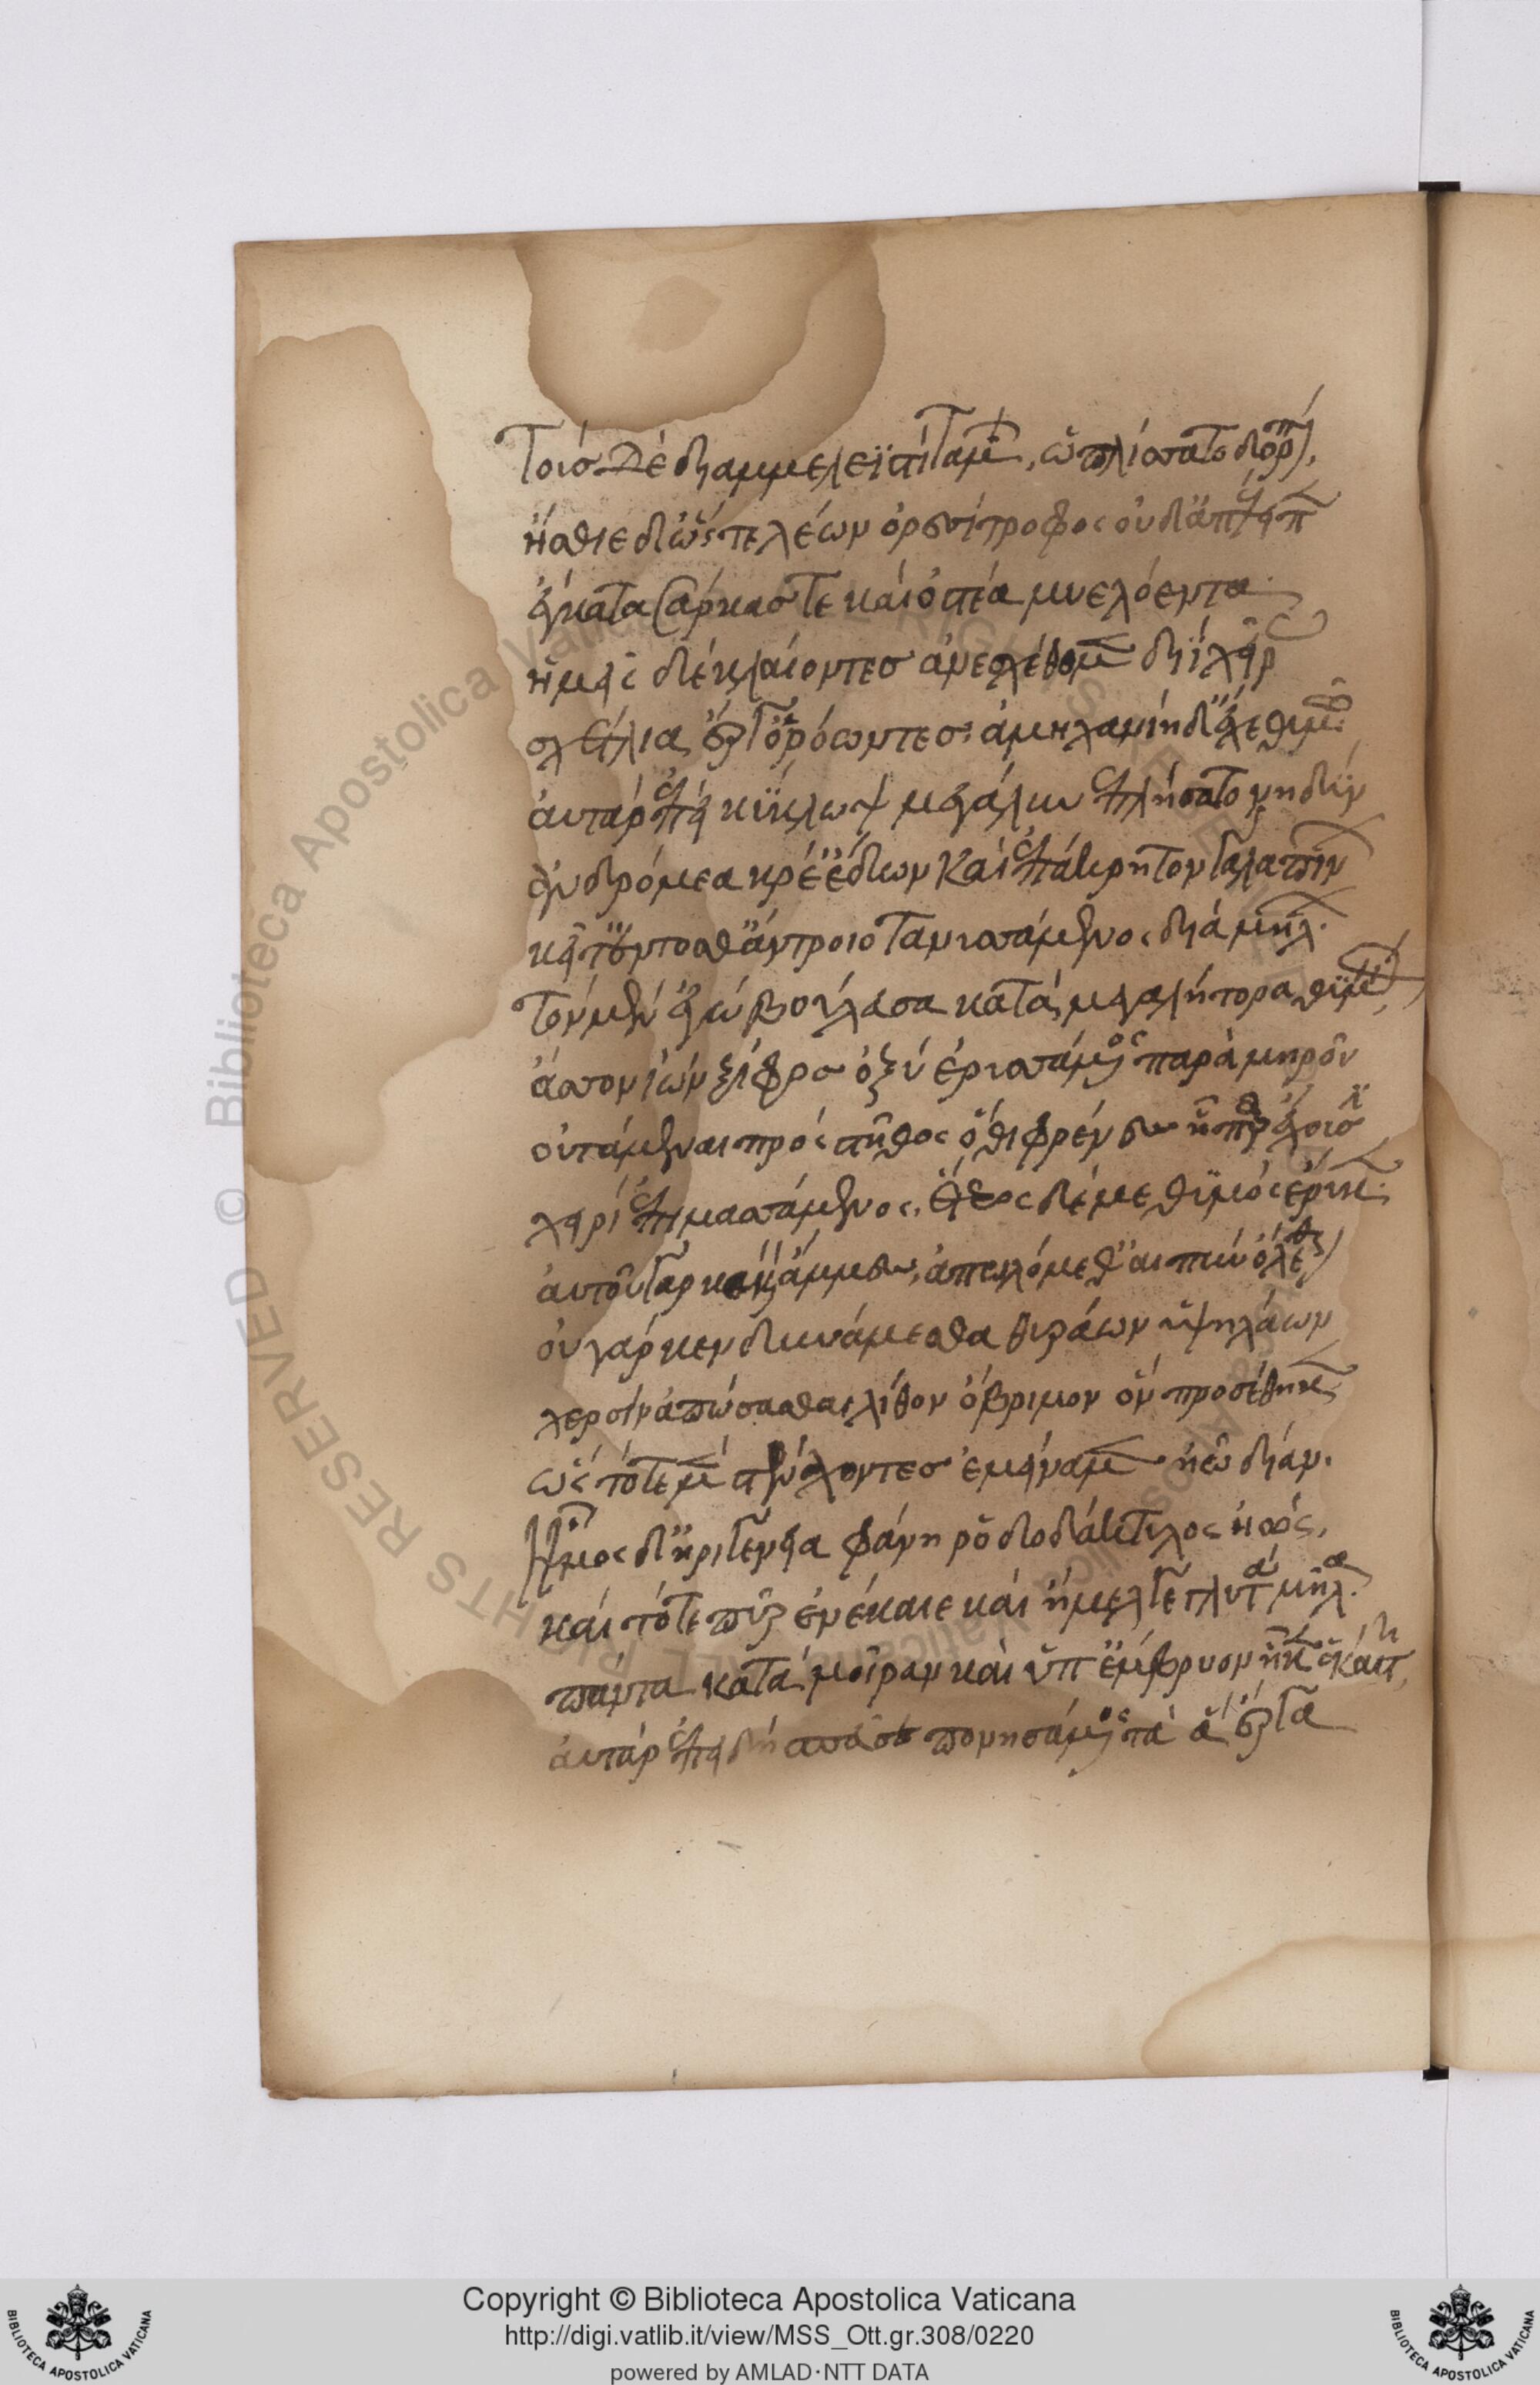 Τοὺσ δὲ διαμμελεϊστὶ ταμὼν, ὡπλίσσατο δόρπον,
ἤσθιε δ' ὥς τε λέων ὀρεσίτροφος οὐδ' ἀπέλειπεν
ἔγκατα σάρκασ τε καὶ ὀστέα μυελόεντα
ἡμεῖς δὲ κλαίοντεσ ἀνεσχέθομεν διῒ χεῖρας
σχέτλια ἔργ' ὁρόωντεσ· ἀμηχανίη δ' ἔχε θυμόν·
αὐτὰρ ἐπεὶ κύκλωψ μεγάλην ἐπλήσατο νηδὺν
ἀνδρόμεα κρέ' ἔδων καὶ ἐπ' ἄκρητον γάλα πίνων
κεῖτ' ἔντοσθ' ἄντροιο τανυσσάμενος διὰ μήλων.
Τὸν μὲν ἐγὼ βούλευσα κατὰ μεγαλήτορα θυμὸν,
ἆσσον ἰὼν ξίφοσ ὀξὺ ἐρυσσάμενος παρὰ μηροῦ
οὐτάμεναι πρὸς στῆθος ὅθι φρένεσ ἧπαρ ἔχουσι
χεῖρ' ἐπιμασσάμενος, ἕτερος δέ με θυμὸς ἔρυκεν.
αὐτοῦ γάρ κε καὶ ἄμμεσ, ἀπωλόμεθ' αἰπὺν ὄλεθρον
οὐ γάρ κεν δυνάμεσθα θυράων ὑψηλάων
χερσὶν ἀπώσασθαι λίθον ὄβριμον ὃν προσέθηκεν
ὣς τότε μὲν στενάχοντεσ ἐμείναμεν ἠῶ δῖαν.
Ἦμος δ' ἠριγένεια φάνη ῥοδοδάκτυλος ἠώς,
καὶ τότε πῦρ ἀνέκαιε καὶ ἤμελγε κλυτὰ μῆλα.
πάντα κατὰ μοῖραν καὶ ὑπ' ἔμβρυον ἧκεν ἑκάστη,
αὐτὰρ ἐπειδὴ σπεῦσε πονησάμενος τὰ ἃ ἔργα
Copyright © Biblioteca Apostolica Vaticana
http://digi.vatlib.it/view/MSS_Ott.gr.308/0220
powered by AMLAD·NTT DATA